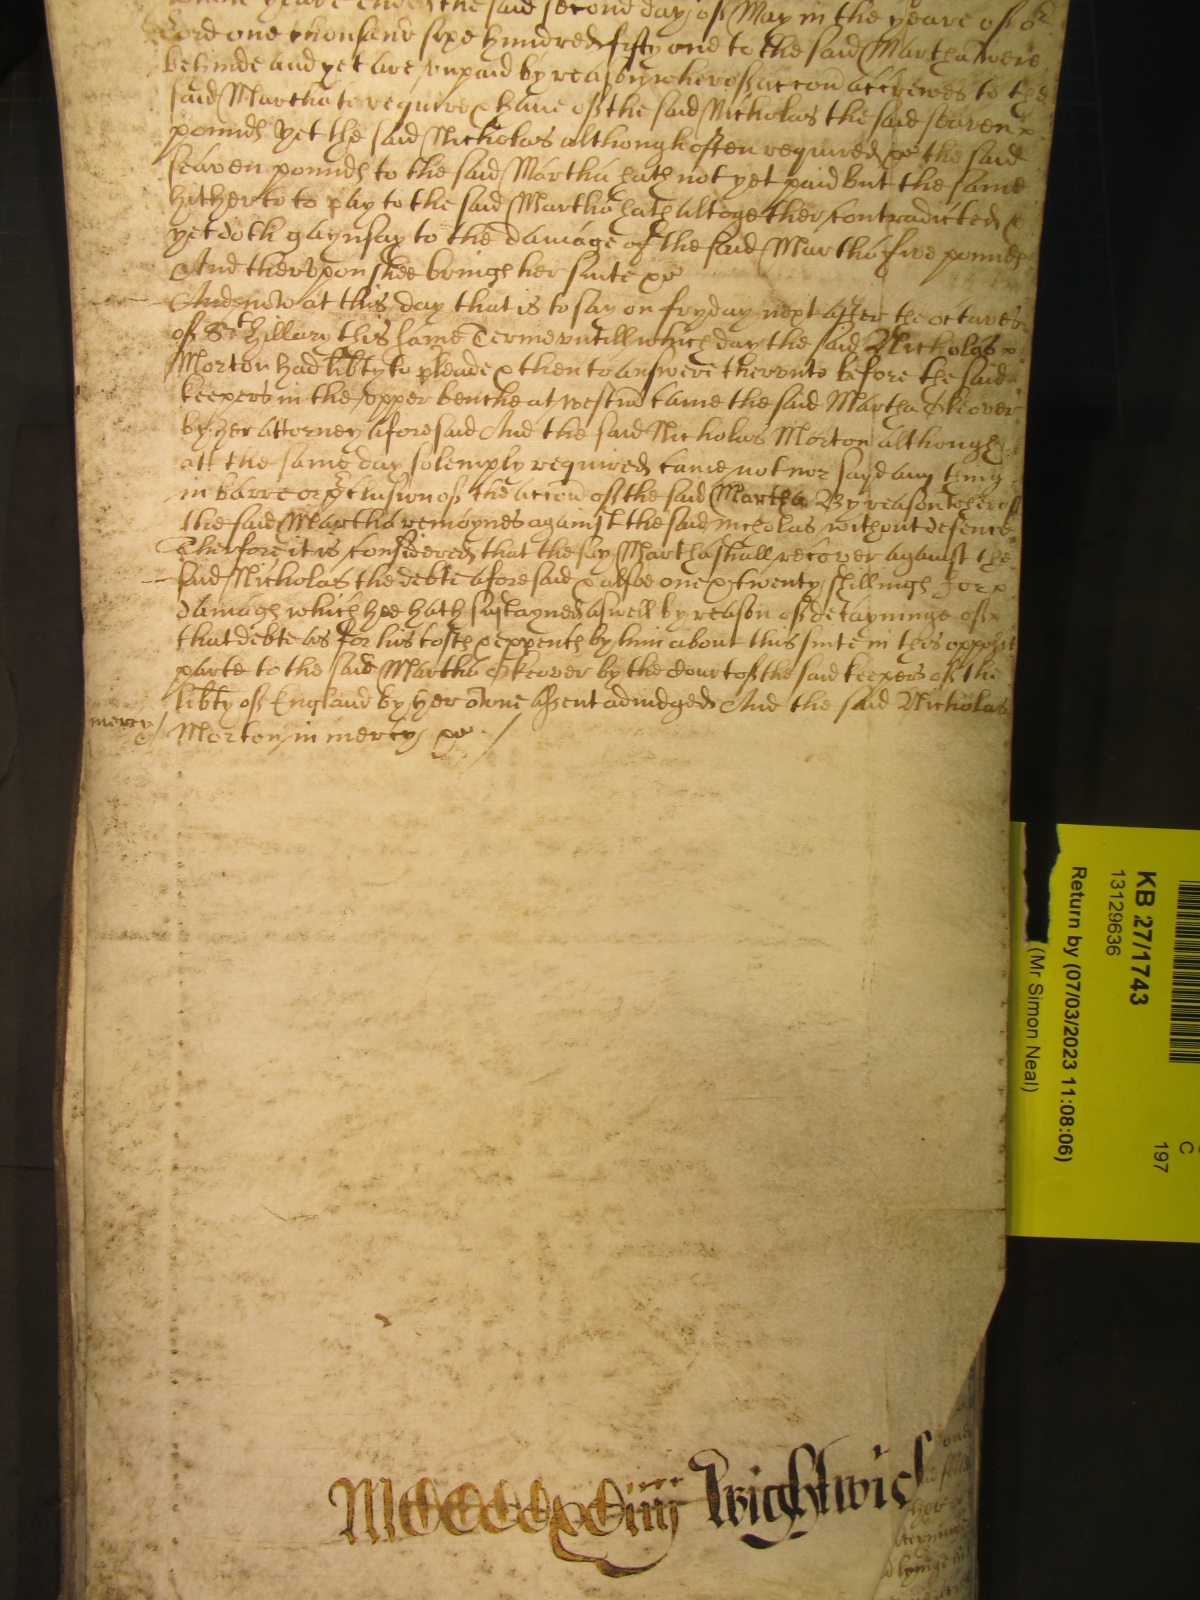 yeare ended the said second day of May in the yeare of or
Lord one thousand sixe hundred fifty one to the said Martha were
behinde and yet are vnpaid by reason wherof accon accrewes to the
said Martha to require & haue of the said Nicholas the said seaven
pounds yet the said Nicholas although often required &c the said
seaven pounds to the said Martha hath not yet paid but the same
hitherto to pay to the said Martha hath altogether contradicted &
yet doth gaynsay to the damage of the said Martha five pounds
And thervpon shee brings her suite &c
And now at this day that is to say on fryday next after the octaves
of St Hillary this same Terme vntill which day the said Nicholas
Morton had libty to pleade & then to answere thervnto before the said
keepers in the vpper benche at westm came the said Martha Skeover
by her attorney aforesaid And the said Nicholas Morton although
att the same day solemply required came not nor sayd any thing
in barre or pclusion of the accon of the said Martha By reason wherof
the said Martha remaynes against the said nicholas without defence
Therfore it is considered that the say Martha shall recover against the
said Nicholas the debte aforesaid & alsoe one & twenty shillings for
damags which hee hath sustayned aswell by reason of detayninge of
that debte as for his costs & expences by him about this suite in this
parte to the said Martha by the Court of the said keepers of the
libty of England by her owne assent adiudged And the said Nicholas
mercy/ Morton in mercy &c /
MCCCCxCiiij Wightwick
KB 27/1743
13129636
Return by (07/03/2023 11:08:06)
(Mr Simon Neal)
C
197